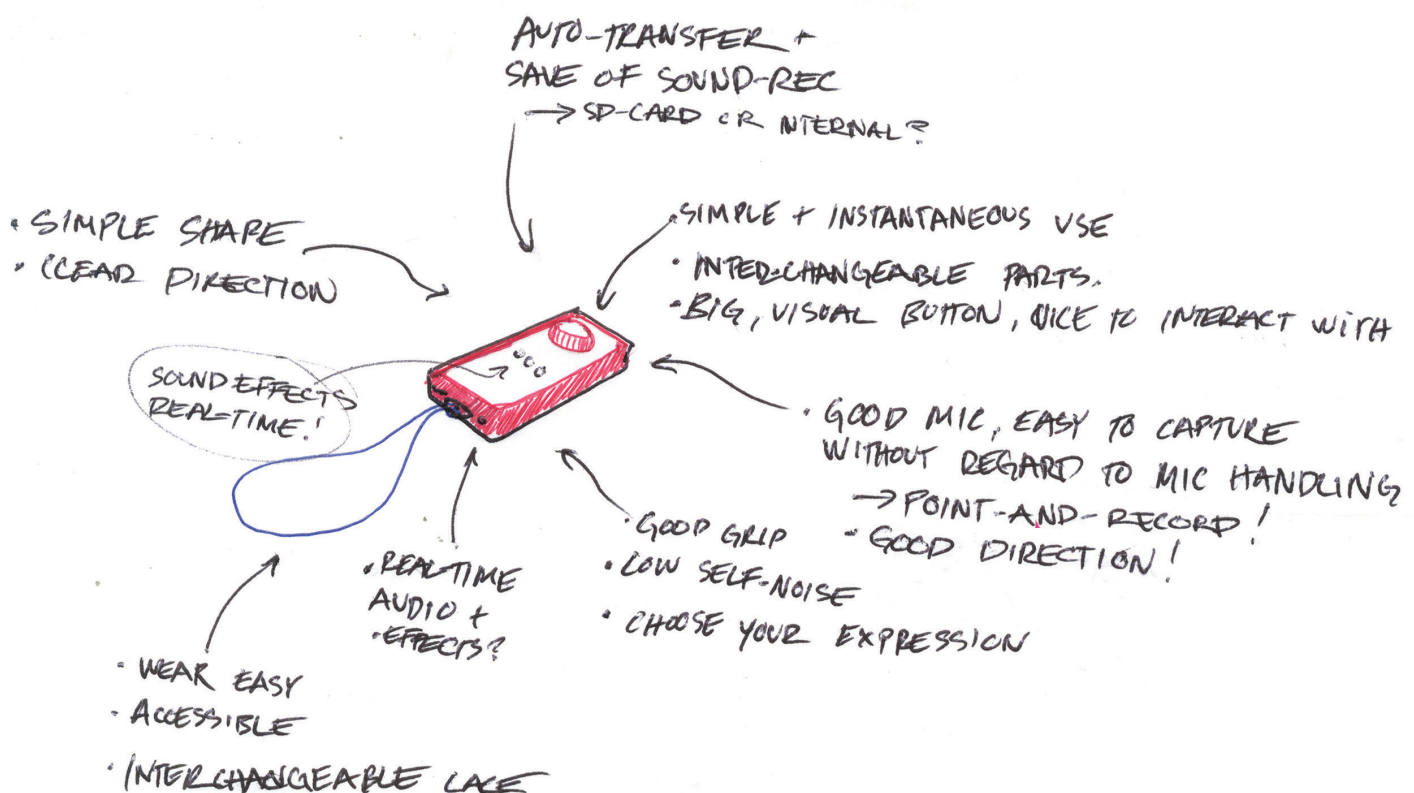 AUTO-TRANSFER +
SAVE OF SOUND-REC
→ SD-CARD OR INTERNAL?
• SIMPLE SHAPE
• CLEAR DIRECTION
• SIMPLE + INSTANTANEOUS USE
• INTER-CHANGEABLE PARTS.
• BIG, VISUAL BUTTON, NICE TO INTERACT WITH
SOUND EFFECTS
REAL-TIME!
• GOOD MIC, EASY TO CAPTURE
WITHOUT REGARD TO MIC HANDLING
→ POINT-AND-RECORD!
• GOOD DIRECTION!
• GOOD GRIP
• LOW SELF-NOISE
• CHOOSE YOUR EXPRESSION
• REAL-TIME
AUDIO +
• EFFECTS?
• WEAR EASY
• ACCESSIBLE
• INTERCHANGEABLE LACE